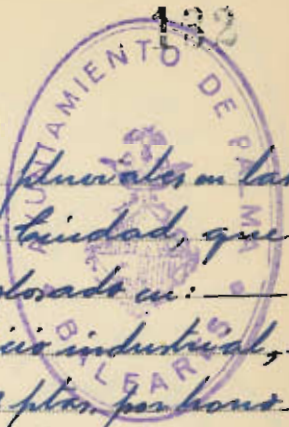 132
AYUNTAMIENTO DE PALMA
BALEARES
pluviales en las
Ciudad, que
en:
industrial,
ptas. por hono